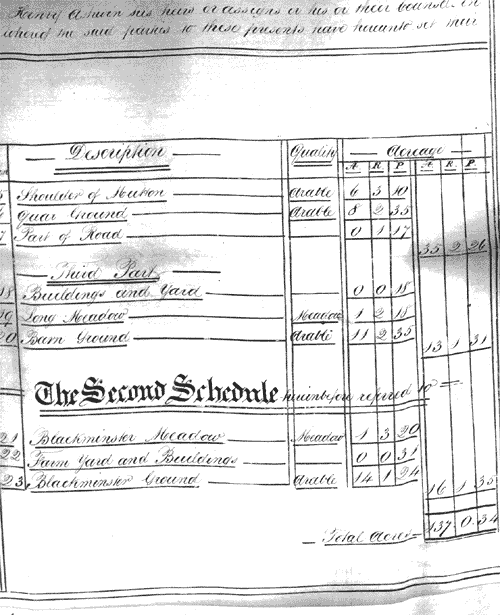 Henry Ashwin his heirs or assigns or his or their counsel In
whereof the said parties to these presents have hereunto set their
Description Quality Acreage
A. R. P. A. R. P.
5 Shoulder of Mutton Arable 6 3 10
6 Quar Ground Arable 8 2 35
7 Part of Road 0 1 17
35 2 26
Third Part
18 Buildings and Yard 0 0 18
19 Long Meadow Meadow 1 2 18
20 Barn Ground Arable 11 2 35
13 1 31
The Second Schedule hereinbefore referred to
21 Blackminster Meadow Meadow 1 3 20
22 Farm Yard and Buildings 0 0 31
23 Blackminster Ground Arable 14 1 24
16 1 35
Total Acres 137 0 34